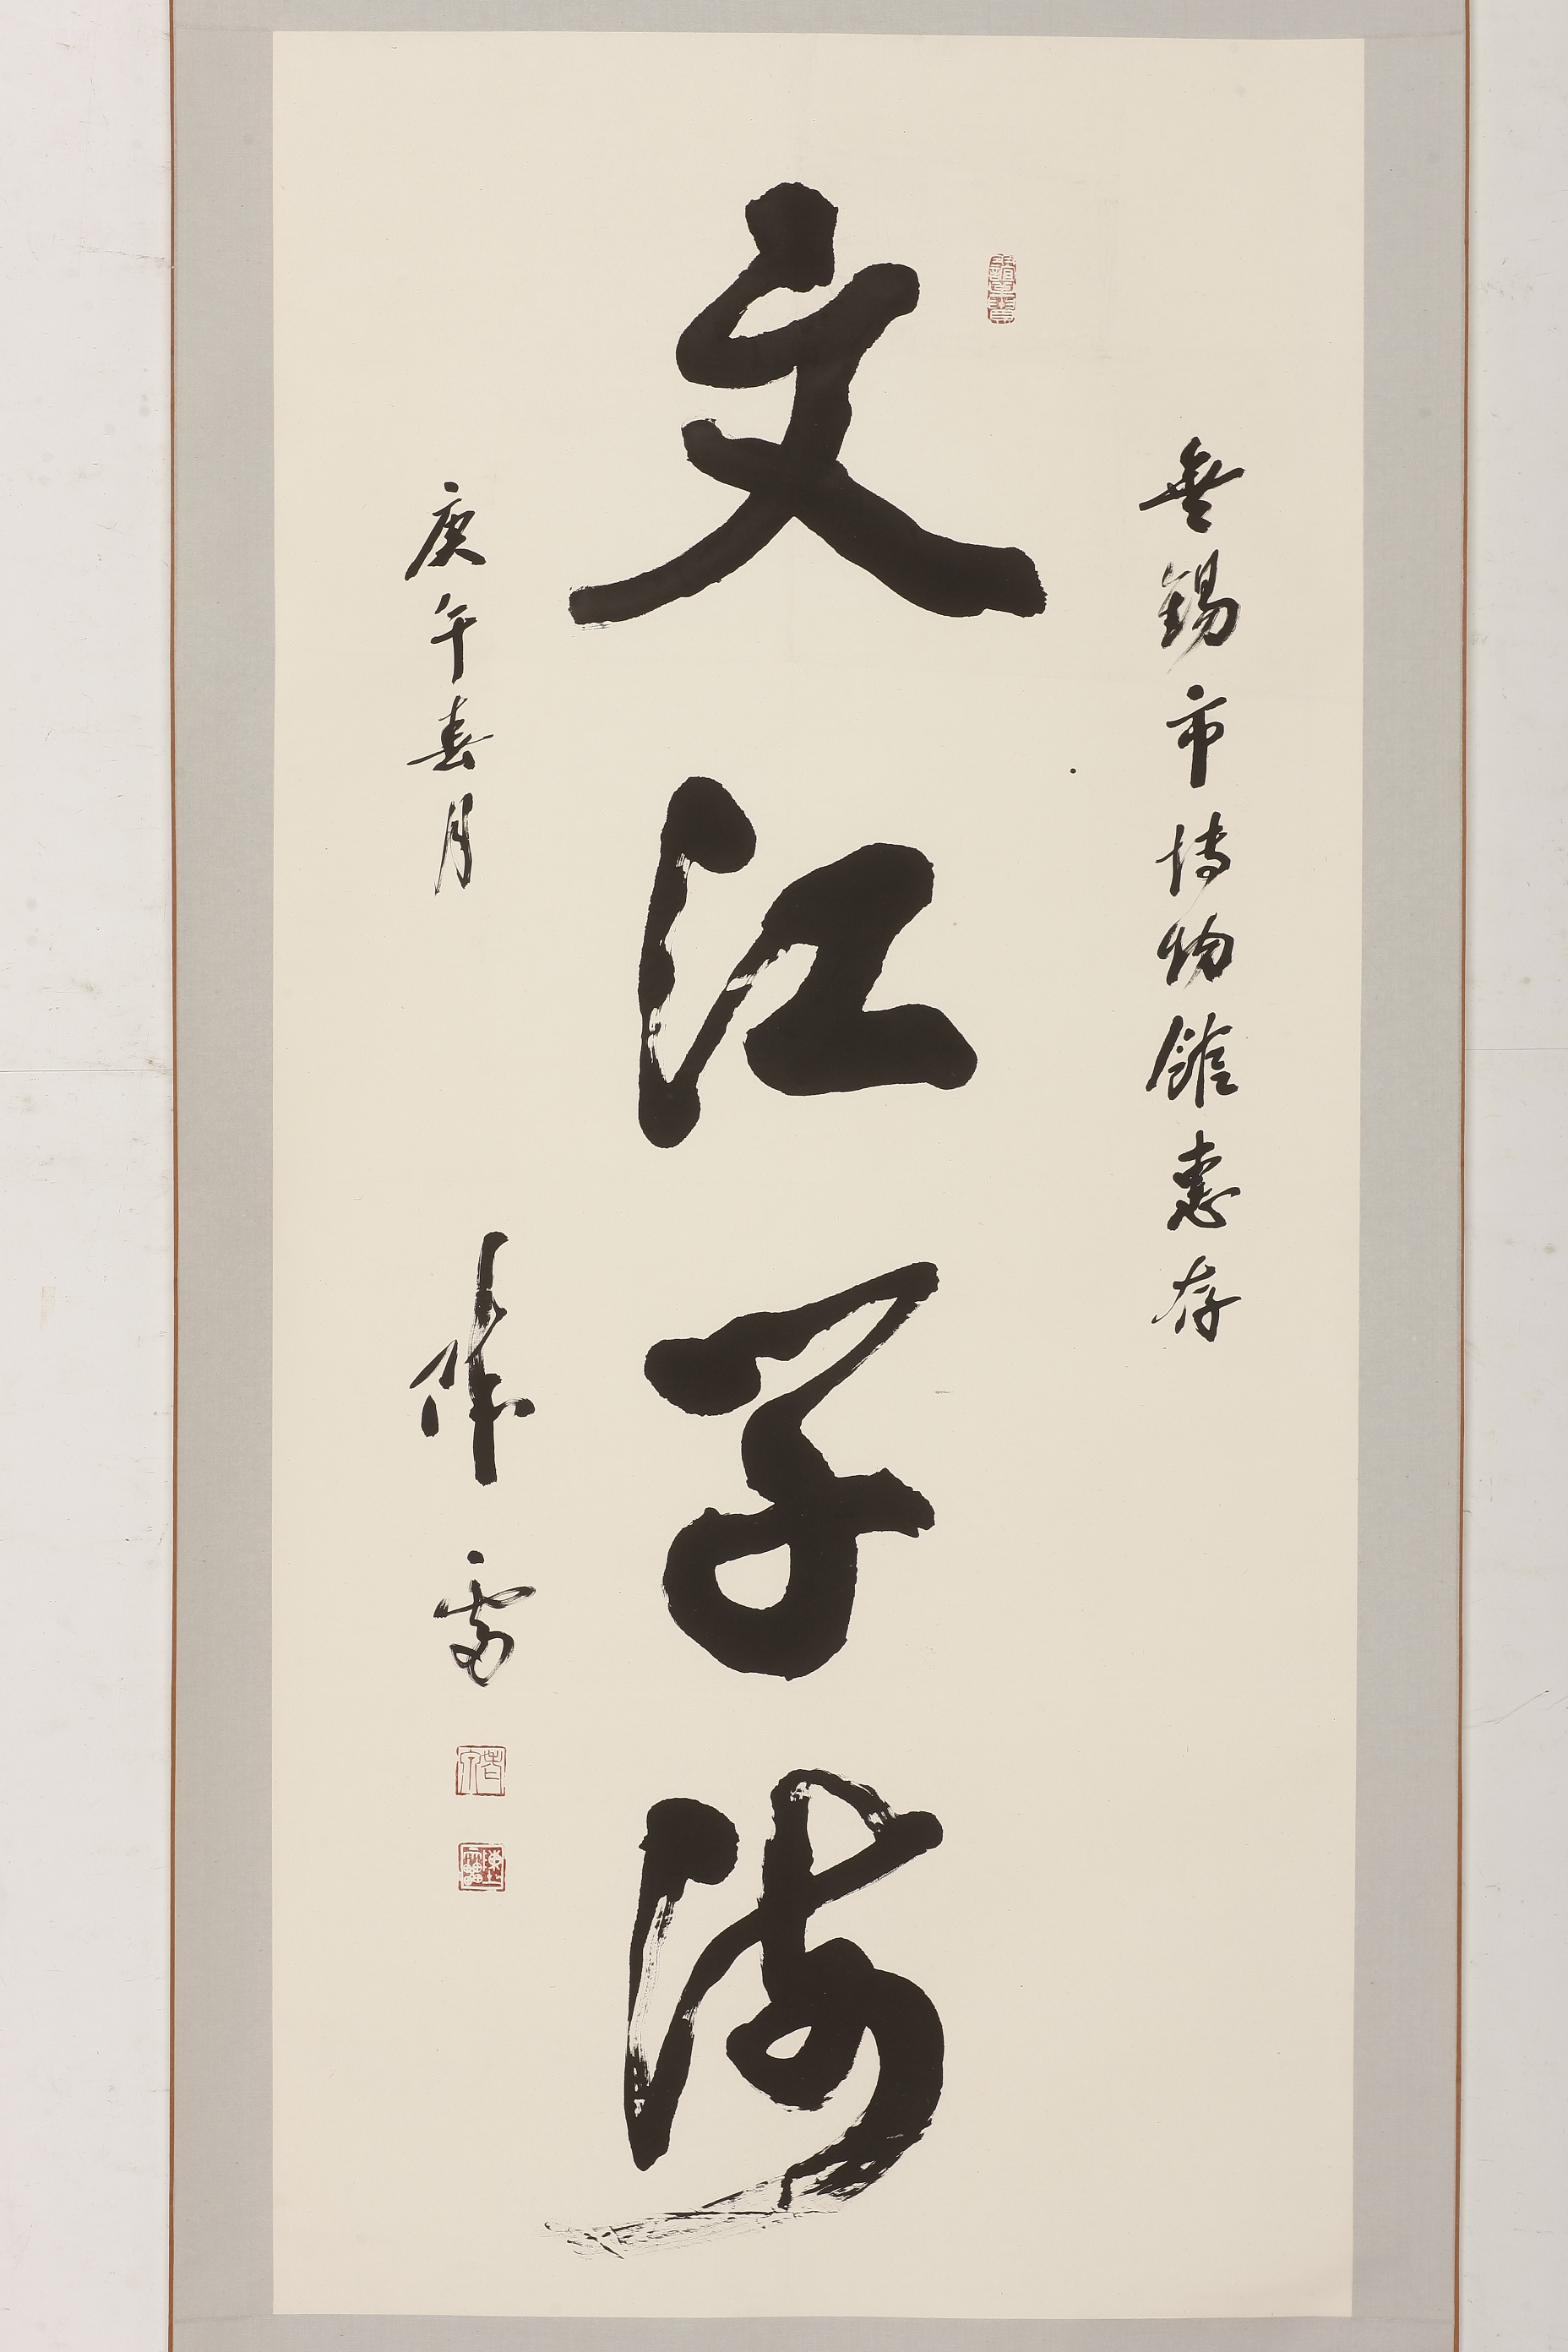 無錫市博物館惠存
文江学海
庚午春月
陳雷